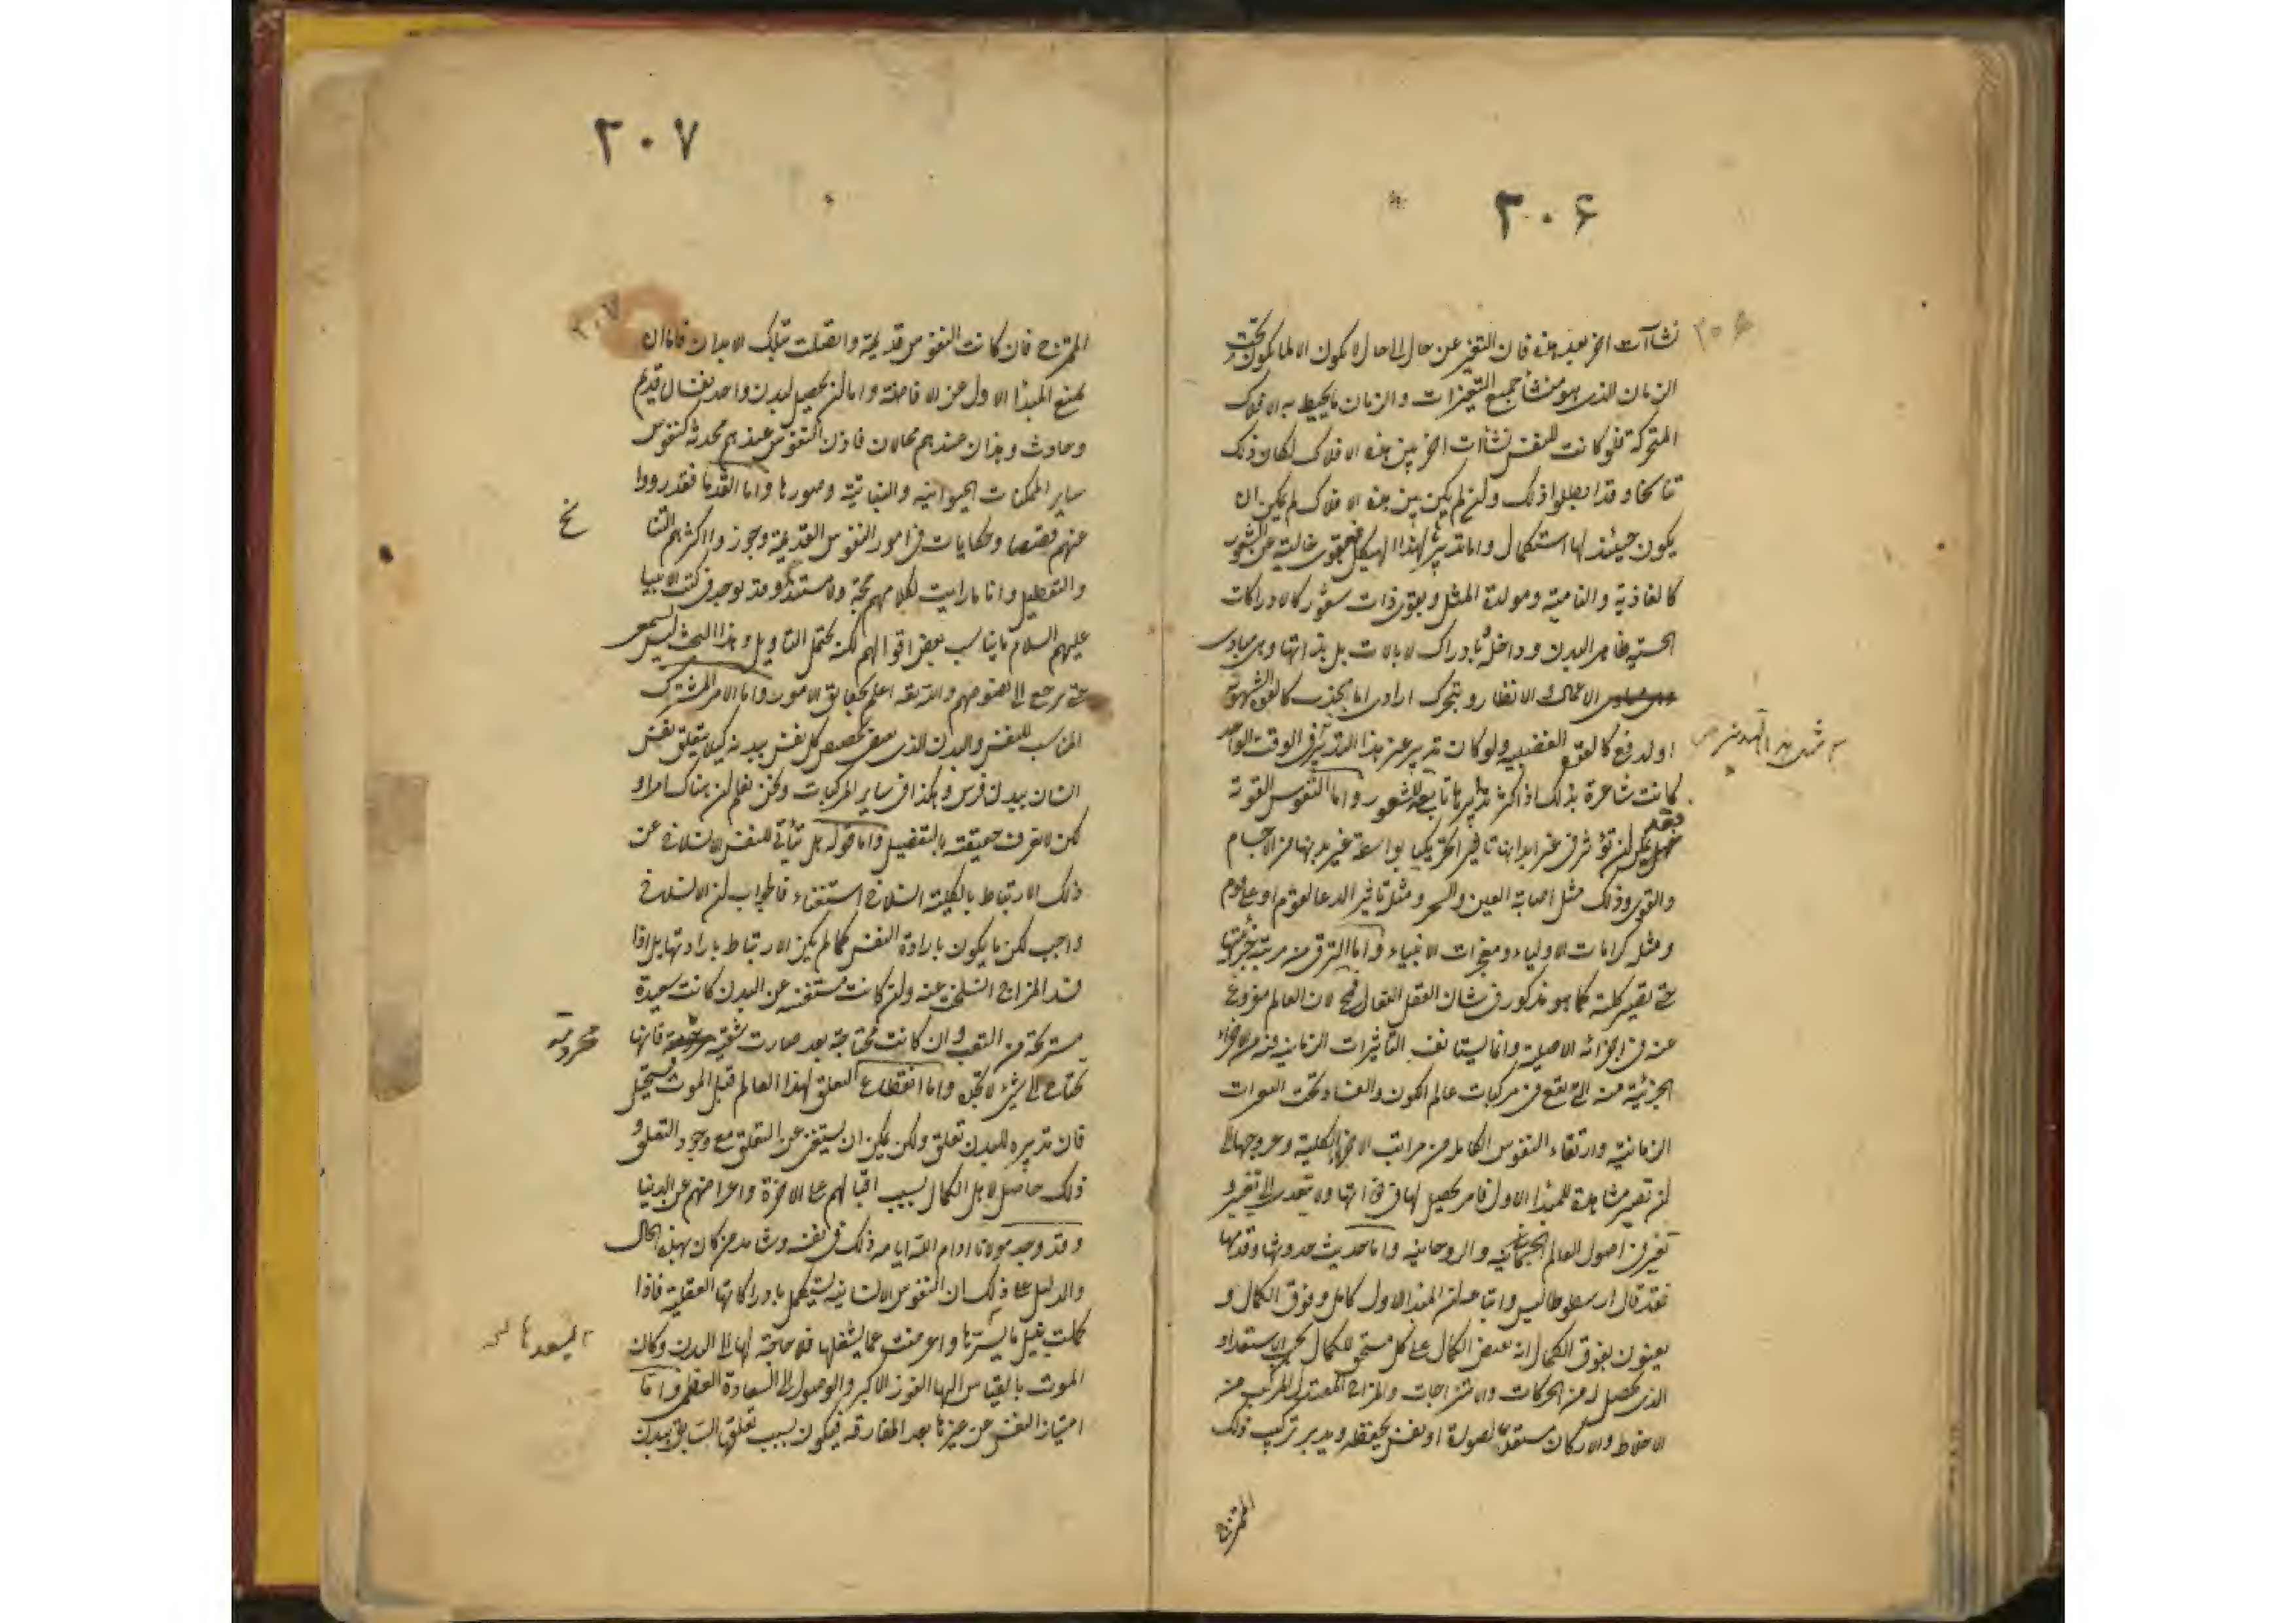 ۳۰۶
۳۰۶
نشاآت اخر بعد هذه فان التغير عن حال الى حال لا يكون الا لما يكون تحت
الزمان الذى هو منشأ جميع التغيرات والزمان ما يحيط به الافلاك
المتحركة فلو كانت للنفس نشاآت اخر بين هذه الافلاك لكان ذلك
تناسخا وقد ابطلوا ذلك ولئن لم يكن بين هذه الافلاك لم يكن ان
يكون حينئذ لها استكمال واما تدبيرها لهذا الهيكل فبقوى خالية عن الشعور
كالغاذية والنامية ومولدة المثل وبقوى ذات شعور كالادراكات
الحسية ظاهر البدن وداخله وبادراك لا بالات بل بذاتها وهى مبادى
الاعمال والانظار وبتحريك ارادى اما بجذب كالقوة الشهوية
او لدفع كالقوة الغضبيه ولو كان تدبير غير هذا التدبير فى الوقت الواحد
كانت شاعرة بذلك اذ اكثر تدبيرها تابعة للشعور واما النفوس القوية
فقد يمكن ان تؤثر فى غير ابدانها تاثير التحريكها بواسطة غير بدنها من الاجسام
والقوى وذلك مثل اصابة العين والسحر ومثل تاثير الدعا لقوم او على قوم
ومثل كرامات الاولياء ومعجزات الانبياء واما الترقى من مرتبة جزئيتها
حتى تصير كلية كما هو مذكور فى شان العقل الفعال فمح لان العالم مفروغ
عنه فى اجزائه الاصلية وانما يستانف التاثيرات الزمانيه فيه من الاجزاء
الجزئية منه التى تقع فى مركبات عالم الكون والفساد تحت التغيرات
الزمانية وارتقاء النفوس الكامله من مراتب الاجزاء الكلية وعروجها الى
ان تصير مشاهدة للمبدأ الاول فامر يحصل لها فى ذاتها ولا يتعدى الى تغيير
تغير فى اصول العالم الجسمانيه والروحانيه واما حديث حدوثها وقدمها
فقد قال ارسطوطاليس واتباعه ان المبدأ الاول كامل وفوق الكمال و
يعنون بفوق الكمال انه يفيض الكمال على كل مستحق للكمال بحسب الاستعداد
الذى يحصل له من الحركات والامتزاجات والمزاج المعتدل المركب من
الاخلاط والاركان مستعد لصورة او نفس يحفظه ويدبر تركيب ذلك
الممتزج
۳۰۷
۳۰۷
الممتزج فان كانت النفوس قديمة واتصلت بتلك الابدان فاما ان
يمنع المبدأ الاول عن الافاضة واما ان يحصل لبدن واحد نفسان قديم
وحادث وهذان عندهم محالان فاذن النفوس عندهم محدثة كنفوس
ساير الممكنات الحيوانيه والنباتية وصورها واما القدما فقد رووا
عنهم قصصا وحكايات فى امور النفوس القديمة وجوز اكثرهم التنا
سخ
والتعطيل وانا ما رايت لكلامهم حجة ولا مستندا وقد يوجد فى كتب الانبيا
عليهم السلام ما يناسب بعض اقوالهم لكنه يحتمل التاويل وهذا البحث ليس بسمعى
حتى يرجع الى نصوصهم والله تعه اعلم بحقايق الامور واما الامر المشترك
المناسب للنفس والبدن الذى يقتضى تخصيص كل نفس ببدنه كيلا يتعلق نفس
انسان ببدن فرس وهكذا فى ساير المركبات ونحن نعلم ان هناك امرا و
لكن لا نعرف حقيقته بالتفصيل واما قوله هل يتأتى للنفس الانسلاخ عن
ذلك الارتباط بالكلية انسلاخ استغناء فالجواب ان الانسلاخ
واجب لكن ما يكون بارادة النفس كما لم يكن الارتباط بارادتها بل اذا
فسد المزاج انسلخت عنه ولئن كانت مستغنيه عن البدن كانت سعيدة
مستريحة من التعب وان كانت محتاجة بعد صارت شقية فانها
محرومة
تحتاج الى شىء لا تجده واما انقطاع التعلق لهذا العالم قبل الموت فمستحيل
فان تدبيره للبدن تعلق ولكن يمكن ان يستغنى عن التعلق مع وجود التعلق و
ذلك حاصل لاهل الكمال بسبب اقبالهم على الاخرة واعراضهم عن الدنيا
وقد وجد مولانا ادام الله ايامه ذلك فى نفسه وشاهد من كان بهذه الحال
والدليل على ذلك ان النفوس الانسانيه يستكمل بادراكاتها العقلية فاذا
كملت بنيل ما يسرها واعرضت عما يشغلها فلا حاجة لها الى البدن وكان
الموت بالقياس اليها الفوز الاكبر والوصول الى السعادة العظمى واما
امتياز النفس عن غيرها بعد المفارقه فيكون بسبب تعلقها السابق ببدن